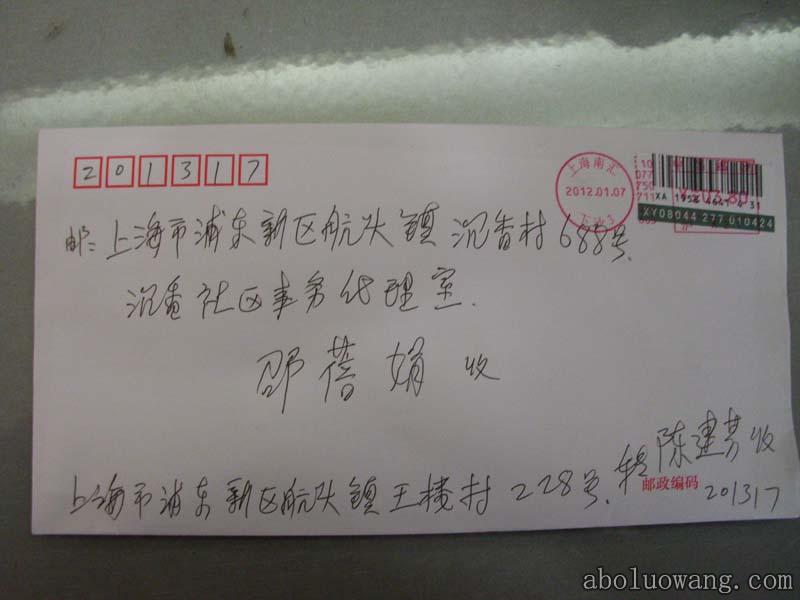 201317
上海南汇
2012.01.07
下沙3
XY08044 277 010424
邮：上海市浦东新区航头镇沉香村688号
沉香社区事务代理室.
邵蓓娟 收
转陈建芳收
上海市浦东新区航头镇王楼村228号.
邮政编码
201317
aboluowang.com